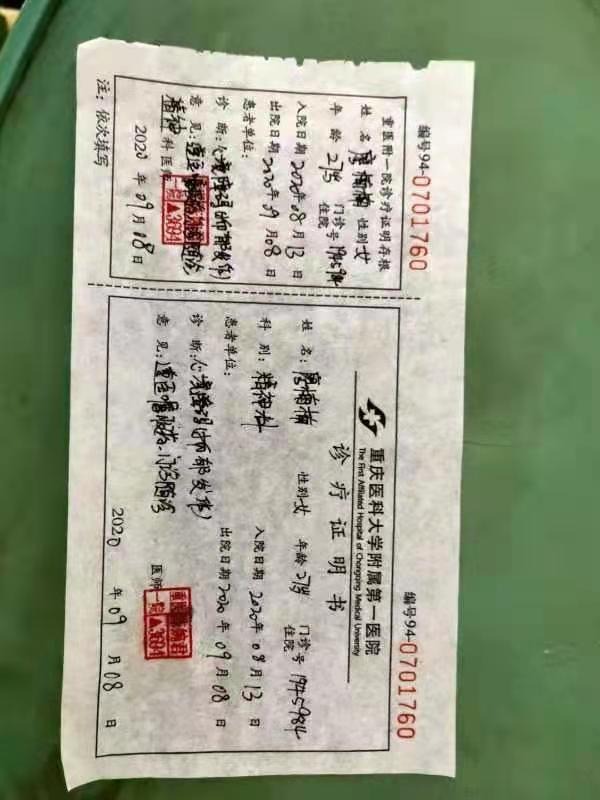 编号94-0701760
重医附一院诊疗证明存根
姓 名 性别 女
年 龄 27岁 门诊号 住院
入院日期 2020年 08月 13
出院日期 2020年 09月 08日
患者单位:
诊 断:
意 见:
精神 科医师
▲3694
2020 年 09 月 08 日
注:依次填写
编号94-0701760
重庆医科大学附属第一医院
The First Affiliated Hospital of Chongqing Medical University
诊疗证明书
姓 名: 性别 女 年龄 27岁 门诊号 住院 1945984
科 别:精神科 入院日期 2020年 08月 13日
患者单位: 出院日期 2020年 09月 08日
诊 断:心境障碍(抑郁发作)
意 见:遵医嘱服药、门诊随诊
医师
▲3694
2020 年 09 月 08 日